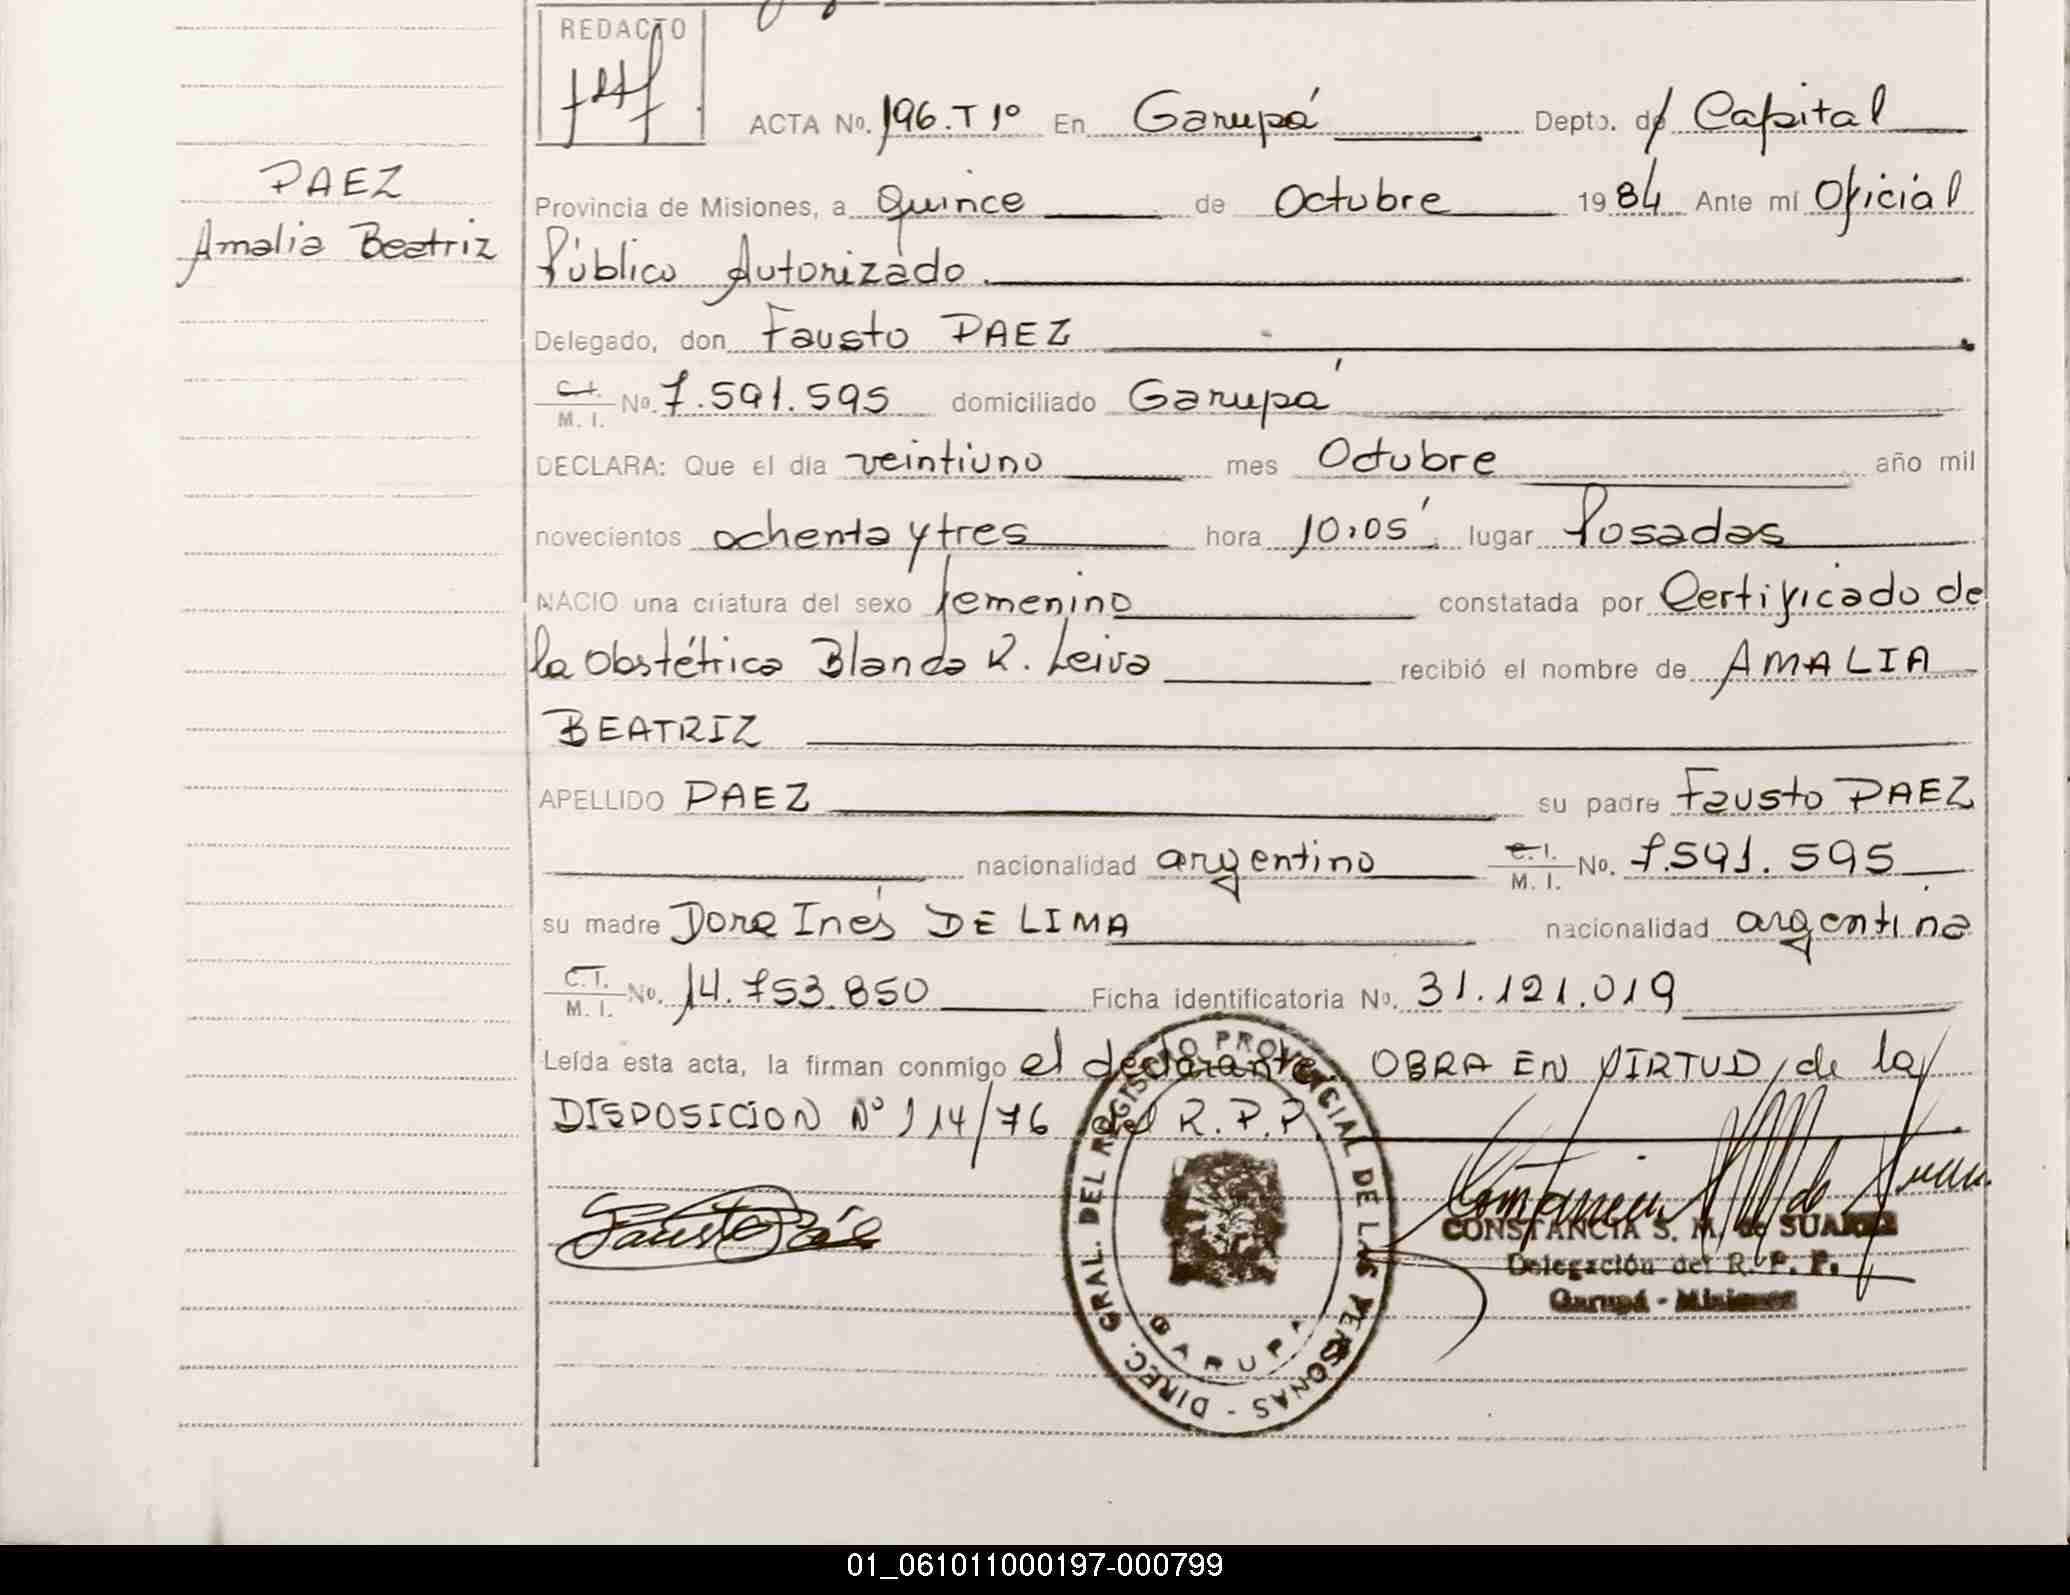 REDACTO
ACTA No. 196. T 1º En Garupá Depto. de Capital
PAEZ
Amalia Beatriz
Provincia de Misiones, a quince de Octubre 1984 Ante mí Oficial
Público Autorizado.
Delegado, don Fausto PAEZ
C.I. M. I. No. 7.591.595 domiciliado Garupá
DECLARA: Que el día veintiuno mes Octubre año mil
novecientos ochenta y tres hora 10,05' lugar Posadas
NACIO una criatura del sexo femenino constatada por Certificado de
la Obstétrica Blanca R. Leiva recibió el nombre de AMALIA
BEATRIZ
APELLIDO PAEZ su padre Fausto PAEZ
nacionalidad argentino C.I. M. I. No. 7.591.595
su madre Dora Inés DE LIMA nacionalidad argentina
C.I. M. I. No. 14.753.850 Ficha identificatoria No. 31.121.019
Leída esta acta, la firman conmigo el declarante. OBRA EN VIRTUD de la
DISPOSICION Nº 114/76 del R.P.P.
Fausto Páez
DIREC. GRAL. DEL REGISTRO PROVINCIAL DE LAS PERSONAS - GARUPA
CONSTANCIA S. M. de SUAREZ
Delegación del R. P. P.
Garupá - Misiones
01_061011000197-000799